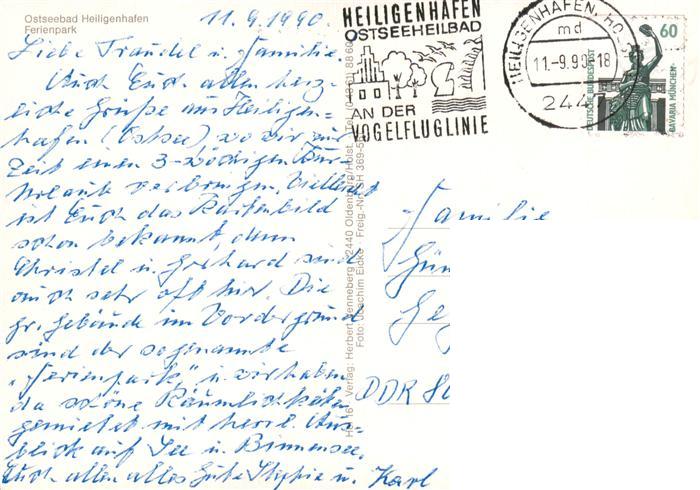 Ostseebad Heiligenhafen
Ferienpark
11.9.1990.
Liebe Traudel u. Familie.
Auch Euch allen herz-
liche Grüße aus Heiligen-
hafen (Ostsee), wo wir zur
Zeit einen 3-wöchigen Kur-
Urlaub verbringen. Vielleicht
ist Euch das Kartenbild
schon bekannt, denn
Christel u. Gerhard sind
auch sehr oft hier. Die
gr. Gebäude im Vordergrund
sind der sogenannte
"Ferienpark," u. wir haben
da schöne Räumlichkeiten
gemietet mit herrl. Aus-
blick auf See u. Binnensee.
Euch allen alles Gute Stephie u. Karl
HEILIGENHAFEN
OSTSEEHEILBAD
AN DER
VOGELFLUGLINIE
HEILIGENHAFEN, HO
md
11.-9.90-18
244
60
DEUTSCHE BUNDESPOST
BAVARIA MÜNCHEN
Verlag: Herbert Henneberg, 2440 Oldenburg/Holst.
Foto: Joachim Eicke · Freig.-Nr. SH 369-5
Familie
Gün
DDR 80